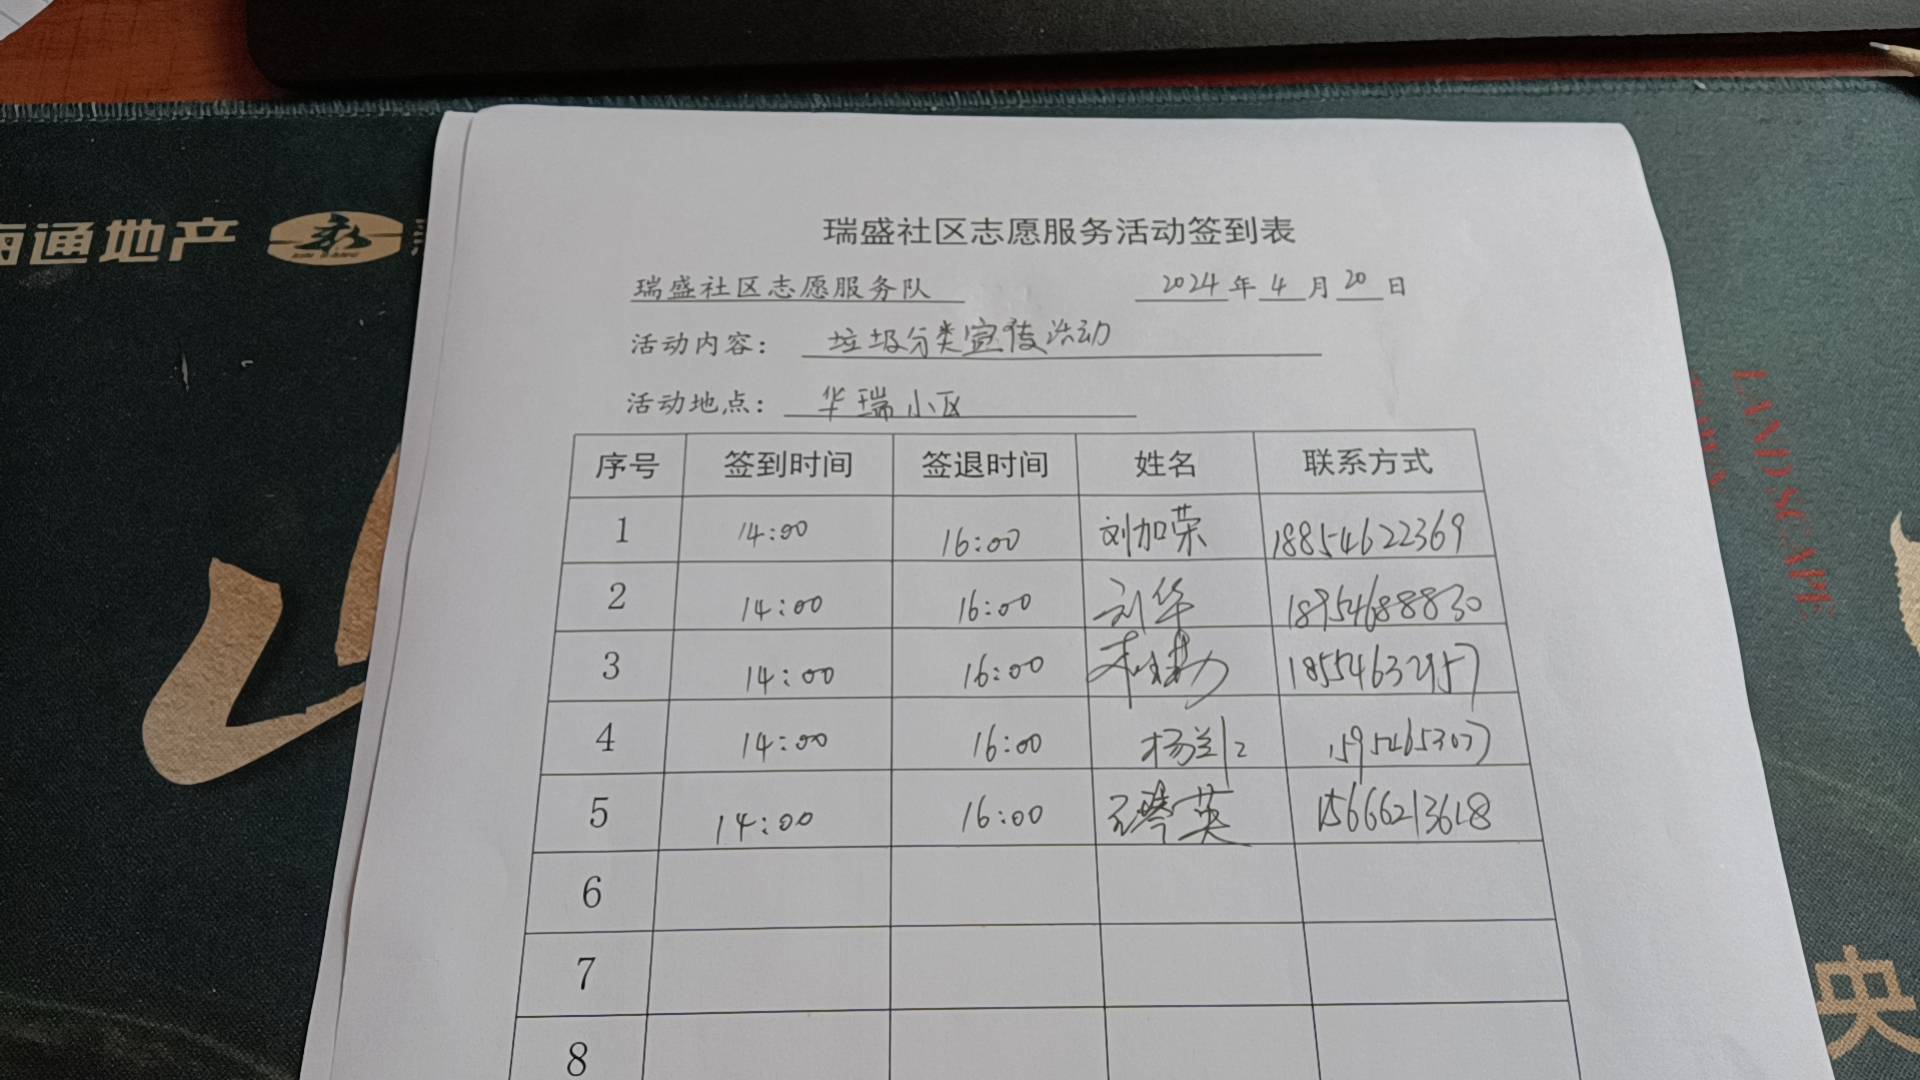 通地产
瑞盛社区志愿服务活动签到表
瑞盛社区志愿服务队 2024年4月20日
活动内容: 垃圾分类宣传活动
活动地点: 华瑞小区
LANDSCAPE
序号 签到时间 签退时间 姓名 联系方式
1 14:00 16:00 刘加荣 18854622369
2 14:00 16:00 刘华 18954688830
3 14:00 16:00
4 14:00 16:00
5 14:00 16:00 英 15666213618
6
7
8
央